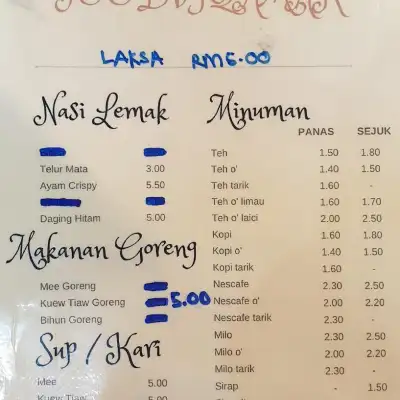 LAKSA RM6.00
Nasi Lemak
Telur Mata 3.00
Ayam Crispy 5.50
Daging Hitam 5.00
Makanan Goreng
Mee Goreng
Kuew Tiaw Goreng 5.00
Bihun Goreng
Sup / Kari
Mee 5.00
Kuew Tiaw 5.00
Minuman
PANAS SEJUK
Teh 1.50 1.80
Teh o' 1.40 1.50
Teh tarik 1.60 -
Teh o' limau 1.60 1.70
Teh o' laici 2.00 2.50
Kopi 1.60 1.80
Kopi o' 1.40 1.50
Kopi tarik 1.60 -
Nescafe 2.30 2.50
Nescafe o' 2.00 2.20
Nescafe tarik 2.30 -
Milo 2.30 2.50
Milo o' 2.00 2.20
Milo tarik 2.30 -
Sirap - 1.50